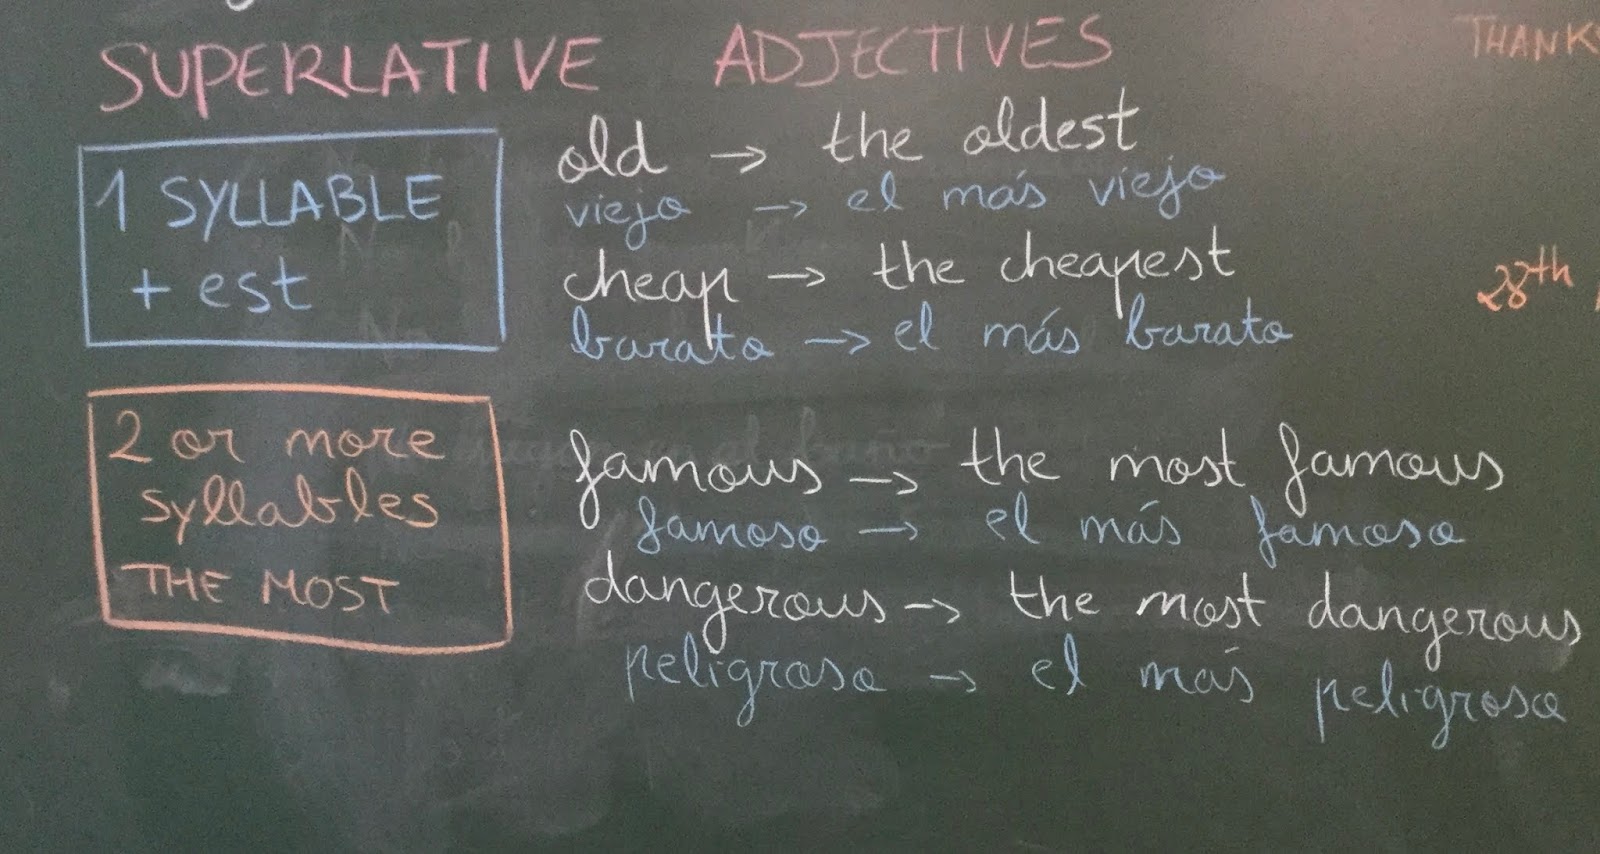 SUPERLATIVE ADJECTIVES
THANKS
1 SYLLABLE
+ est
old → the oldest
viejo → el más viejo
cheap → the cheapest
barato → el más barato
28th
2 or more
syllables
THE MOST
famous → the most famous
famoso → el más famoso
dangerous → the most dangerous
peligroso → el más peligroso